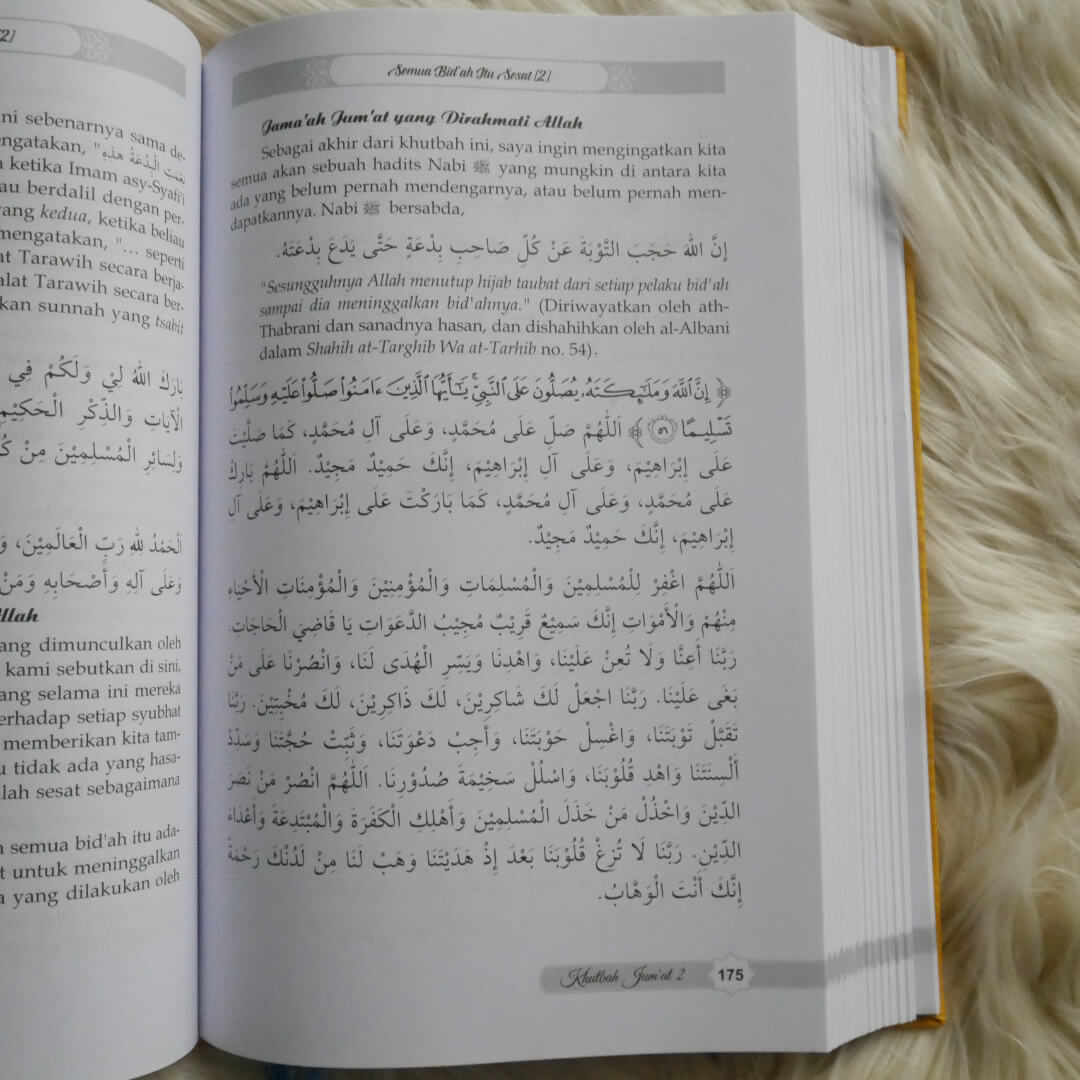 2]
ni sebenarnya sama de-
engatakan, "نِعْمَتِ الْبِدْعَةُ هَذِهِ
ketika Imam asy-Syafi'i
au berdalil dengan per-
yang kedua, ketika beliau
mengatakan, "... seperti
at Tarawih secara berja-
alat Tarawih secara ber-
kan sunnah yang tsabit
بَارَكَ اللهُ لِيْ وَلَكُمْ فِي
الْآيَاتِ وَالذِّكْرِ الْحَكِيْمِ
وَلِسَائِرِ الْمُسْلِمِيْنَ مِنْ كُ
اَلْحَمْدُ لِلهِ رَبِّ الْعَالَمِيْنَ، وَ
وَعَلَى آلِهِ وَأَصْحَابِهِ وَمَنْ
llah
ang dimunculkan oleh
kami sebutkan di sini,
ang selama ini mereka
erhadap setiap syubhat
memberikan kita tam-
u tidak ada yang hasa-
lah sesat sebagaimana
a semua bid'ah itu ada-
t untuk meninggalkan
a yang dilakukan oleh
Semua Bid'ah Itu Sesat [2]
Jama'ah Jum'at yang Dirahmati Allah
Sebagai akhir dari khutbah ini, saya ingin mengingatkan kita
semua akan sebuah hadits Nabi ﷺ yang mungkin di antara kita
ada yang belum pernah mendengarnya, atau belum pernah men-
dapatkannya. Nabi ﷺ bersabda,
إِنَّ اللهَ حَجَبَ التَّوْبَةَ عَنْ كُلِّ صَاحِبِ بِدْعَةٍ حَتَّى يَدَعَ بِدْعَتَهُ.
"Sesungguhnya Allah menutup hijab taubat dari setiap pelaku bid'ah
sampai dia meninggalkan bid'ahnya." (Diriwayatkan oleh ath-
Thabrani dan sanadnya hasan, dan dishahihkan oleh al-Albani
dalam Shahih at-Targhib Wa at-Tarhib no. 54).
﴿ إِنَّ ٱللَّهَ وَمَلَٰٓئِكَتَهُۥ يُصَلُّونَ عَلَى ٱلنَّبِيِّ ۚ يَٰٓأَيُّهَا ٱلَّذِينَ ءَامَنُوا۟ صَلُّوا۟ عَلَيْهِ وَسَلِّمُوا۟
تَسْلِيمًا ٥٦ ﴾ اَللّٰهُمَّ صَلِّ عَلَى مُحَمَّدٍ، وَعَلَى آلِ مُحَمَّدٍ، كَمَا صَلَّيْتَ
عَلَى إِبْرَاهِيْمَ، وَعَلَى آلِ إِبْرَاهِيْمَ، إِنَّكَ حَمِيْدٌ مَجِيْدٌ. اَللّٰهُمَّ بَارِكْ
عَلَى مُحَمَّدٍ، وَعَلَى آلِ مُحَمَّدٍ، كَمَا بَارَكْتَ عَلَى إِبْرَاهِيْمَ، وَعَلَى آلِ
إِبْرَاهِيْمَ، إِنَّكَ حَمِيْدٌ مَجِيْدٌ.
اَللّٰهُمَّ اغْفِرْ لِلْمُسْلِمِيْنَ وَالْمُسْلِمَاتِ وَالْمُؤْمِنِيْنَ وَالْمُؤْمِنَاتِ الْأَحْيَاءِ
مِنْهُمْ وَالْأَمْوَاتِ إِنَّكَ سَمِيْعٌ قَرِيْبٌ مُجِيْبُ الدَّعَوَاتِ يَا قَاضِيَ الْحَاجَاتِ.
رَبَّنَا أَعِنَّا وَلَا تُعِنْ عَلَيْنَا، وَاهْدِنَا وَيَسِّرِ الْهُدَى لَنَا، وَانْصُرْنَا عَلَى مَنْ
بَغَى عَلَيْنَا. رَبَّنَا اجْعَلْ لَكَ شَاكِرِيْنَ، لَكَ ذَاكِرِيْنَ، لَكَ مُخْبِتِيْنَ. رَبَّنَا
تَقَبَّلْ تَوْبَتَنَا، وَاغْسِلْ حَوْبَتَنَا، وَأَجِبْ دَعْوَتَنَا، وَثَبِّتْ حُجَّتَنَا وَسَدِّدْ
أَلْسِنَتَنَا وَاهْدِ قُلُوْبَنَا، وَاسْلُلْ سَخِيْمَةَ صُدُوْرِنَا. اَللّٰهُمَّ انْصُرْ مَنْ نَصَرَ
الدِّيْنَ وَاخْذُلْ مَنْ خَذَلَ الْمُسْلِمِيْنَ وَأَهْلِكِ الْكَفَرَةَ وَالْمُبْتَدِعَةَ وَأَعْدَاءَ
الدِّيْنِ. رَبَّنَا لَا تُزِغْ قُلُوْبَنَا بَعْدَ إِذْ هَدَيْتَنَا وَهَبْ لَنَا مِنْ لَدُنْكَ رَحْمَةً
إِنَّكَ أَنْتَ الْوَهَّابُ.
Khutbah Jum'at 2 175